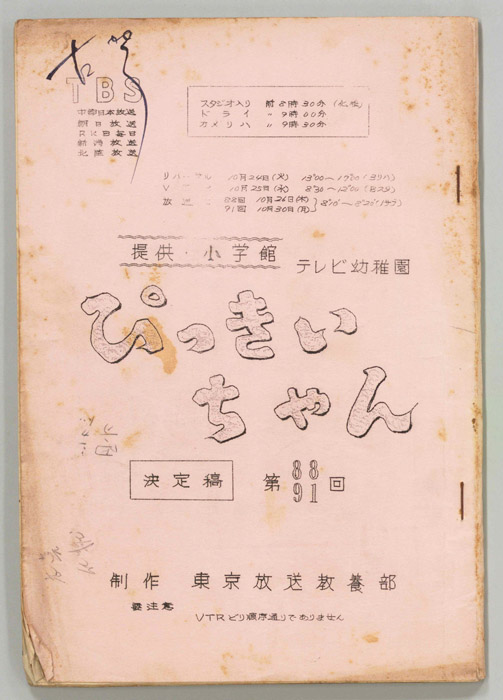 TBS
中部日本放送
朝日放送
RKB毎日
新潟放送
北陸放送
スタジオ入り 前8時30分
ドライ 〃 9時00分
カメリハ 〃 9時30分
リハーサル 10月24日(火) 13:00〜17:00
10月25日(水) 8:30〜12:00
放送 88回 10月26日(木)
91回 10月30日(月)
提供・小学館
テレビ幼稚園
ぴっきぃ
ちゃん
決定稿 第88 91回
制作 東京放送教養部
要注意
VTRどり順序通りでありません